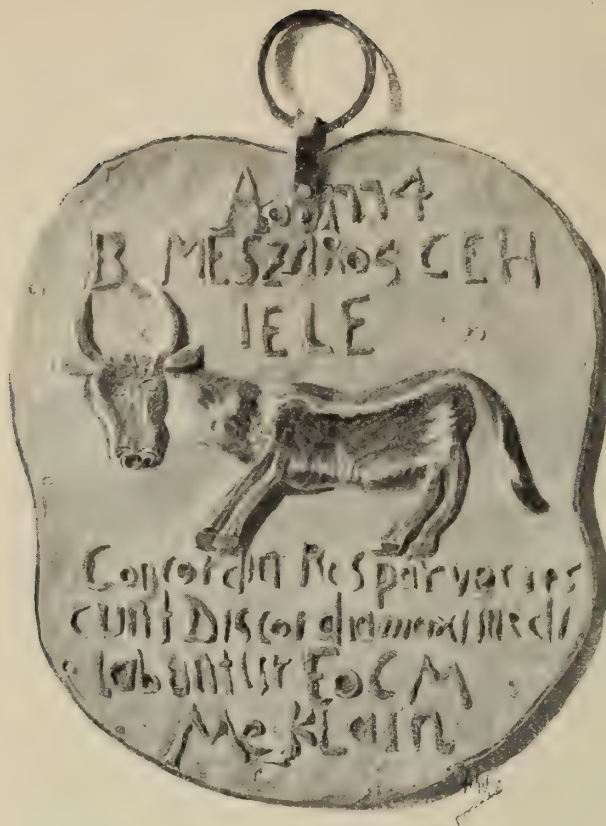 B MESZAROS CEH
IELE
Concordia Res parvae cres
cunt Discordia
labuntur EoCM
Me Klain